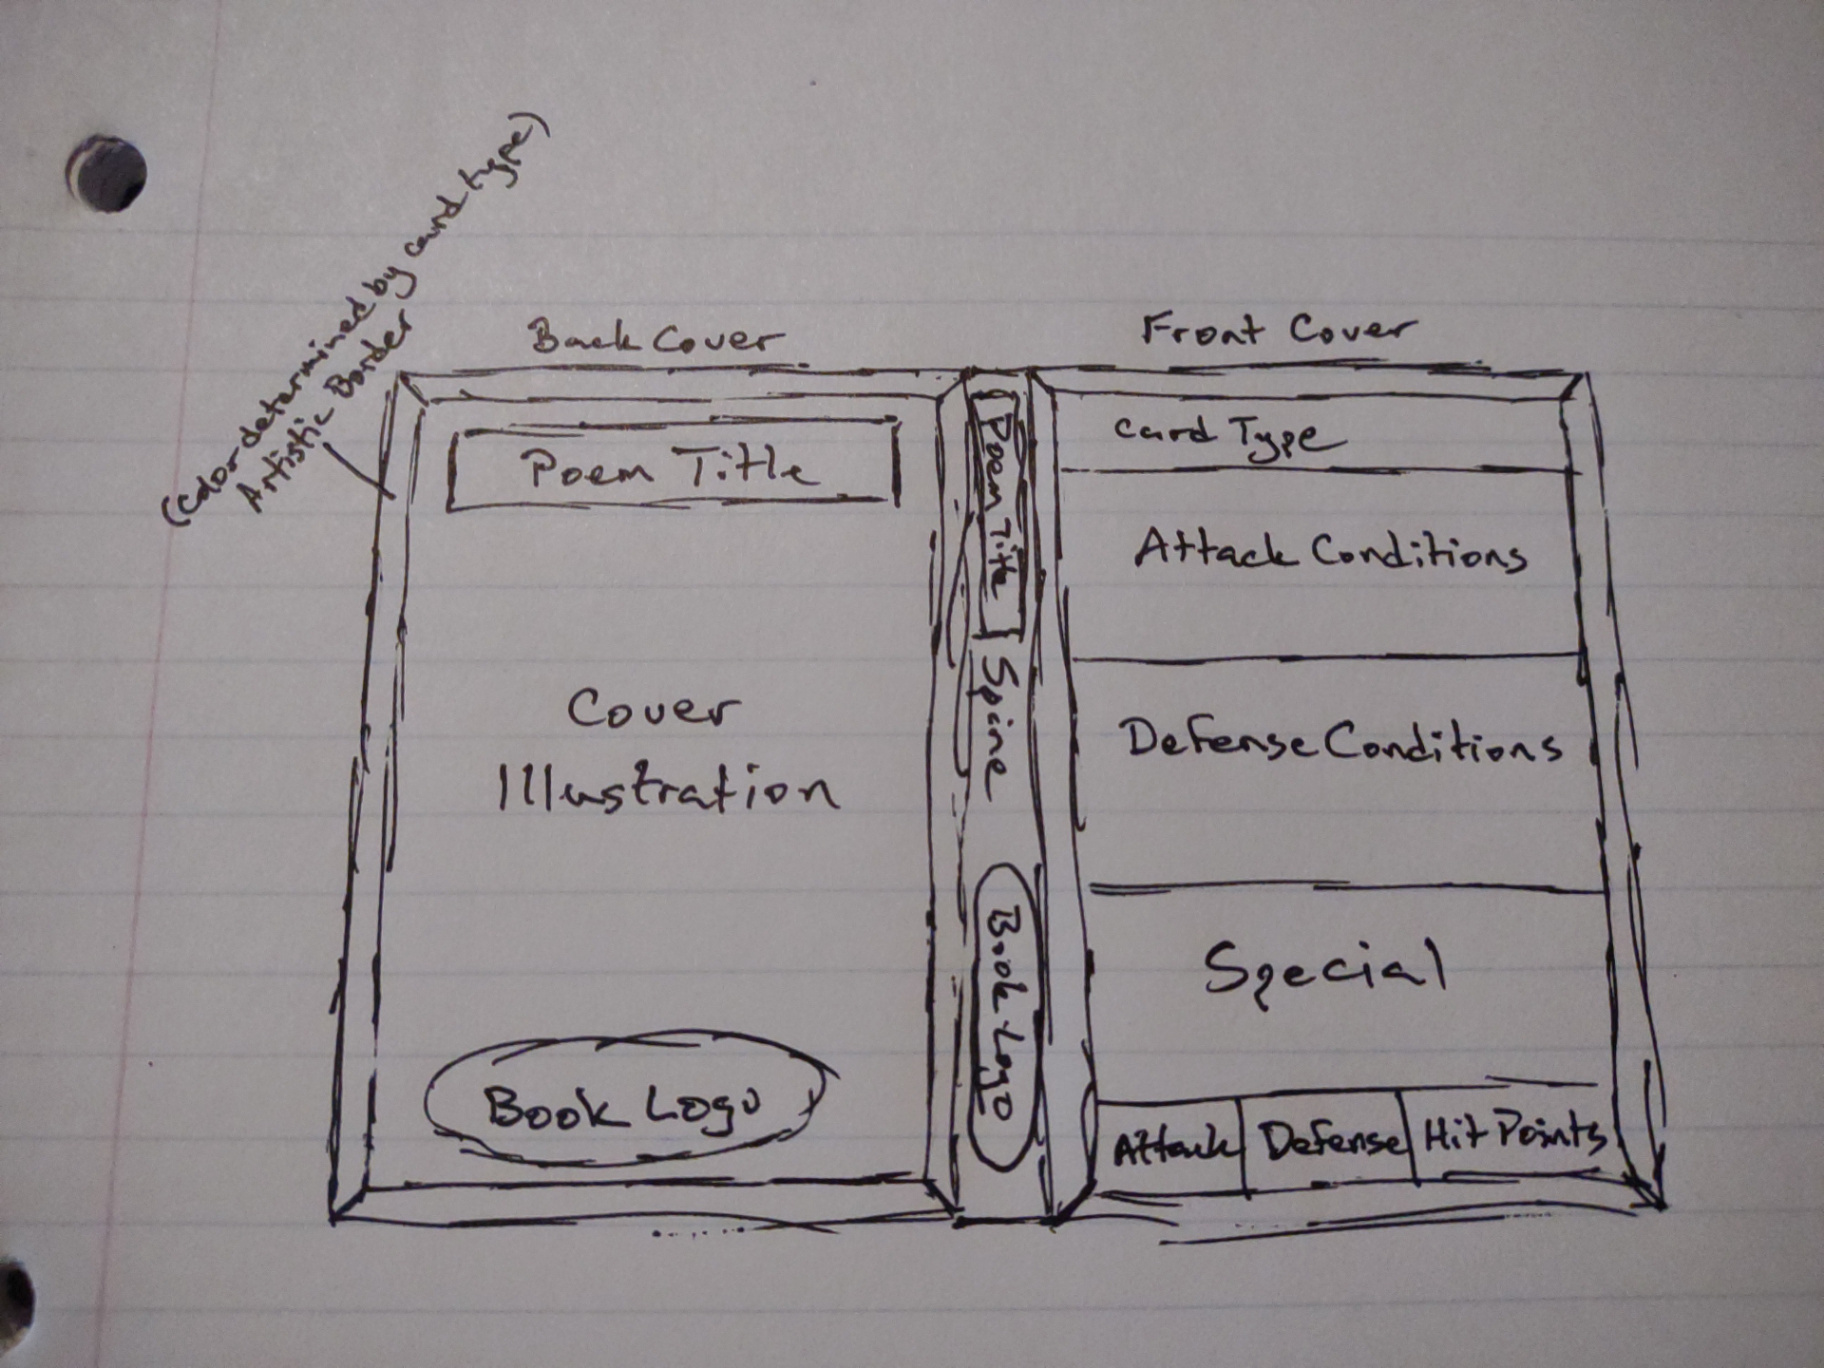 (Color determined by card type)
Artistic Border
Back Cover
Front Cover
Poem Title
Cover
Illustration
Book Logo
Poem Title
Spine
Book Logo
Card Type
Attack Conditions
Defense Conditions
Special
Attack
Defense
Hit Points